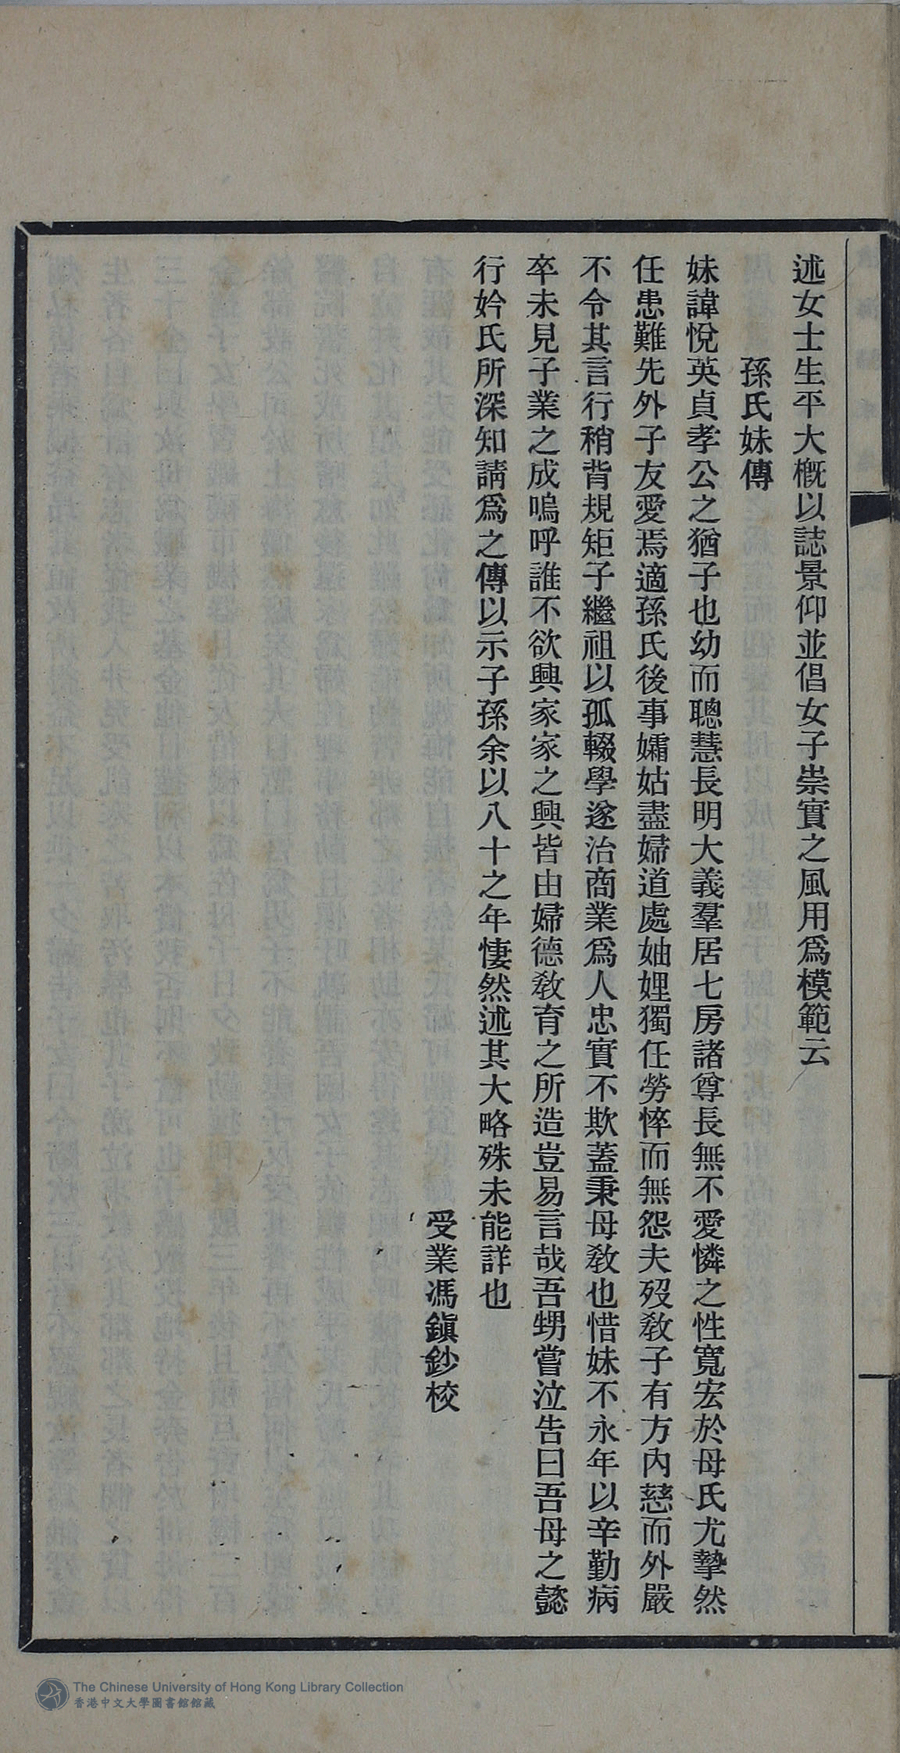 述女士生平大槪以誌景仰並倡女子崇實之風用爲模範云
孫氏妹傳
妹諱悅英貞孝公之猶子也幼而聰慧長明大義羣居七房諸尊長無不愛憐之性寬宏於母氏尤摯然
任患難先外子友愛焉適孫氏後事孀姑盡婦道處妯娌獨任勞悴而無怨夫歿敎子有方內慈而外嚴
不令其言行稍背規矩子繼祖以孤輟學遂治商業爲人忠實不欺蓋秉母敎也惜妹不永年以辛勤病
卒未見子業之成嗚呼誰不欲興家家之興皆由婦德敎育之所造豈易言哉吾甥嘗泣告曰吾母之懿
行妗氏所深知請爲之傳以示子孫余以八十之年悽然述其大略殊未能詳也
受業馮鎭鈔校
The Chinese University of Hong Kong Library Collection
香港中文大學圖書館館藏